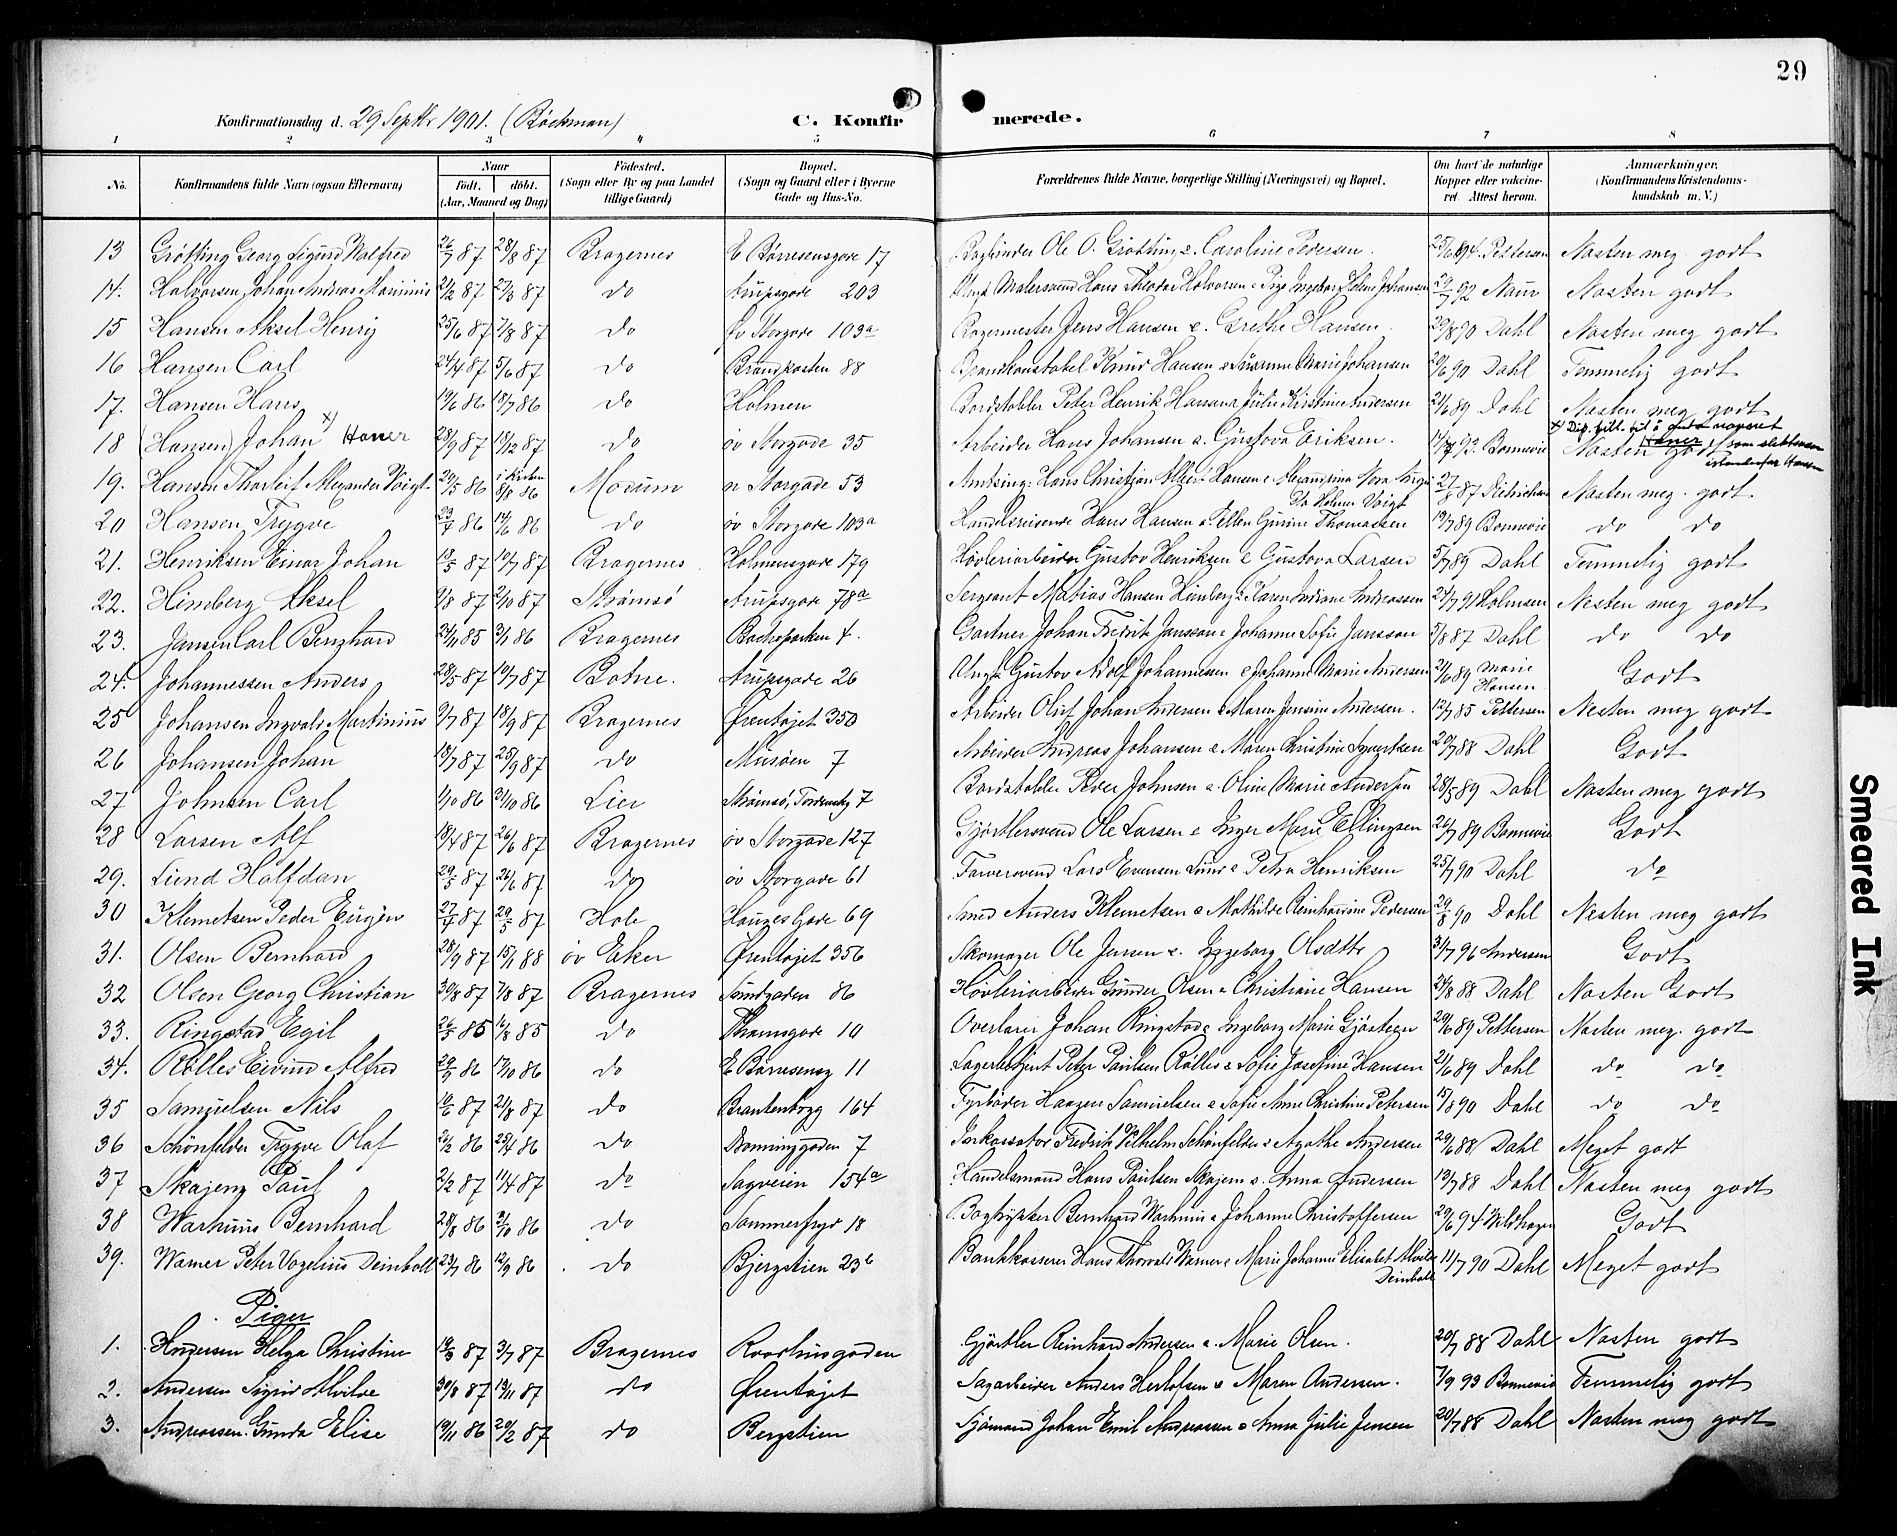 29
Konfirmationsdag d. 29 Septbr 1901. (Böckman) C. Konfirmerede.
1 2 3 4 5 6 7 8
No. Konfirmandens fulde Navn (ogsaa Efternavn) Naar født. døbt. (Aar, Maaned og Dag) Fødested. (Sogn eller By og paa Landet tillige Gaard) Bopæl. (Sogn og Gaard eller i Byerne Gade og Hus-No. Forældrenes fulde Navne, borgerlige Stilling (Næringsvei) og Bopæl. Om havt de naturlige Kopper eller vakcineret. Attest herom. Anmærkninger. (Konfirmandens Kristendomskundskab m. V.)
13 Grötting Georg Sigurd Walfred 26/7 87 28/8 87 Bragernes E Börresensgade 17 Bogbinder Ole O. Grötting e. Caroline Pedersen. 25/6 94. Pettersen Næsten meg. godt
14. Halvorsen Johan Andreas Marinius 21/2 87 27/3 87 do Arupsgade 203 Ungk Malersvend Hans Theodor Halvorsen e Pige Ingebor Helene Johansen 29/7 92 Naur Næsten godt
15 Hansen Aksel Henry 25/6 87 7/8 87 do öv Storgade 103a Bagermester Jens Hansen e. Grethe Hansen. 29/8 90 Dahl Næsten meg godt
16 Hansen Carl 24/4 87 5/6 87 do Brandposten 88 Brandkonstabel Knud Hansen e Susanne Marie Johansen 20/6 90 Dahl Temmelig godt
17. Hansen Hans 19/6 86 18/7 86 do Holmen Bordstabler Peter Henrik Hansen e Julie Kristine Andersen 21/6 89 Dahl Næsten meg godt
18 (Hansen) Johan x) Haner 28/9 87 18/12 87 do öv Storgade 35 Arbeider Hans Johansen e. Gustava Eriksen. 14/7 93. Bonnevie Næsten godt
x) Dep. till. til å anta navnet Haner som slektsnavn istedenfor Hansen
19. Hansen Thorleif Alexander Voigt 29/5 86 i Kirken 8/8 86 Modum n Storgade 53 Amtsing: Hans Christjan Albert Hansen e Alexandrina Nora Inga Da Helmer Voigt 27/8 87 Dietrichson Næsten meg. godt
20 Hansen Trygve 23/4 86 14/6 86 do öv Storgade 103a Handelsreisende Hans Hansen e Ellen Gurine Thomassen 19/7 89 Bonnevie do do
21. Henriksen Einar Johan 18/5 87 10/7 87 Bragernes Holmensgade 179 Hövleriarbeider Gustav Henriksen e Gustava Larsen 5/7 89 Dahl Temmelig godt
22. Himberg Aksel 9/8 87 2/10 87 Strømsö Arupsgade 78a Sergeant Mathias Hansen Himberg e Karen Indiane Andreassen 27/7 91 Holmsen Næsten meg godt
23. Jansen Carl Bernhard 24/11 85 3/1 86 Bragernes Bacheparken 4. Gartner Johan Fredrik Jansson e Johanne Sofie Jansson 5/8 87 Dahl do do
24. Johannessen Anders 28/5 87 10/7 87 Botne. Arupsgade 26 Ungk Gustav Adolf Johannesen e Johanne Marie Andersen 21/6 89 Marie Hansen Godt
25 Johansen Ingvald Martinius 9/7 87 18/9 87 Bragernes Ørentøjet 350 Arbeider Oluf Johan Andersen e Maren Jensine Andersen. 12/7 85 Pettersen Næsten meg godt
26 Johansen Johan 18/7 87 25/9 87 do Musöen 7 Arbeider Andreas Johansen e Maren Christine Syvertsen 20/7 88 Dahl Godt
27 Johnsen Carl 1/10 86 31/10 86 Lier Strømsö, Tordenskg 7 Bordstabler Peder Johnsen e Oline Marie Andersen 28/5 89 Dahl Næsten meg godt
28 Larsen Alf 18/4 87 26/6 87 Bragernes öv Storgade 127 Gjörtlersvend Ole Larsen e Inger Marie Ellingsen 26/7 89 Bonnevie Godt
29. Lund Halfdan 29/5 87 26/6 87 do öv Storgade 61 Farversvend Lars Evensen Lund e Petra Henriksen 25/7 90 Dahl do
30 Klemetsen Peder Eugen 27/4 87 29/5 87 Hole Hauges Gade 69 Smed Anders Klemetsen e Mathilde Reinhardine Pedersen 29/8 90 Dahl Næsten meg godt
31. Olsen Bernhard 28/9 87 15/1 88 öv Eker Ørentøjet 356 Skomager Ole Jensen e. Ingeborg Olsdtr 31/7 96 Andersen Godt
32 Olsen Georg Christian 30/8 87 7/8 87 Bragernes Sundgaden 86 Hövleriarbeider Gunder Olsen e Christiane Hansen 24/8 88 Dahl Næsten Godt
33. Ringstad Egil 26/5 85 16/8 85 do Thamsgade 10 Overlærer Johan Ringstad e Ingeborg Marie Gjösteen 29/6 89 Pettersen Næsten meg. godt
34. Rölles Eivind Alfred 29/9 86 17/10 86 do E Börresensg 11 Lagerbetjent Peter Paulsen Rölles e Sofie Josefine Hansen 21/6 89 Dahl do do
35 Samuelsen Nils 10/6 87 21/8 87 do Brantenborg 164 Fyrbøder Haagen Samuelsen e Sofie Anne Christine Petersen 15/8 90 Dahl do do
36 Schönfelder Trygve Olaf 26/2 86 25/4 86 do Dronninggaden 7 Inkassator Fredrik Vilhelm Schönfelder e Agathe Andersen 29/6 88 Dahl Meget godt
37 Skajem Paul 21/2 87 11/4 87 do Sagveien 154a Handelsmand Hans Paulsen Skajem e. Anna Andersen 13/7 88 Dahl Næsten meg godt
38 Warhuus Bernhard 28/8 86 3/10 86 do Sommerfryd 18 Bogtrykker Bernhard Warhuus e Johanne Christoffersen 29/6 94 Wildhagen Godt
39. Warner Peter Vogelius Deinboll 23/7 86 12/9 86 do Bjergstien 23b Bankkasserer Hans Thorvald Warner e Marie Johanne Elisabet Alvilde Deinboll 11/7 90 Dahl Meget godt
Piger
1. Andersen Helga Christine 19/3 87 3/7 87 Bragernes Raadhusgaden Gjörtler Reinhard Andersen e. Marie Olsen. 20/7 88 Dahl Næsten godt
2. Andersen Sigrid Alvilde 30/8 87 13/11 87 do Ørentøjet Sagarbeider Anders Herlofsen e Maren Andersen. 7/9 93 Bonnevie Temmelig godt
3. Andreassen Gunda Elise 19/11 86 20/2 87 do Bergstien Sjömand Johan Emil Andreassen e Anna Julie Jensen 20/7 88 Dahl Næsten meg godt
Smeared Ink